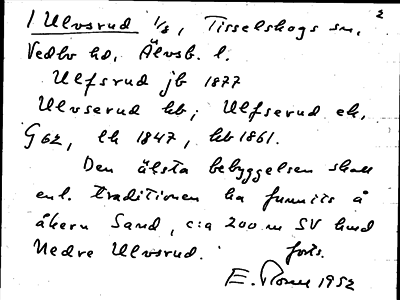 2
1 Ulvsrud 1/8, Tisselskogs sn,
Vedbo hd, Älvsb. l.
Ulfsrud jb 1877
Ulvserud kb; Ulfserud ek,
G 62, lk 1847, kb 1861.
Den älsta bebyggelsen skall
enl. traditionen ha funnits å
åkern Sand, c:a 200 m SV om
Nedre Ulvsrud. forts.
E. 1952